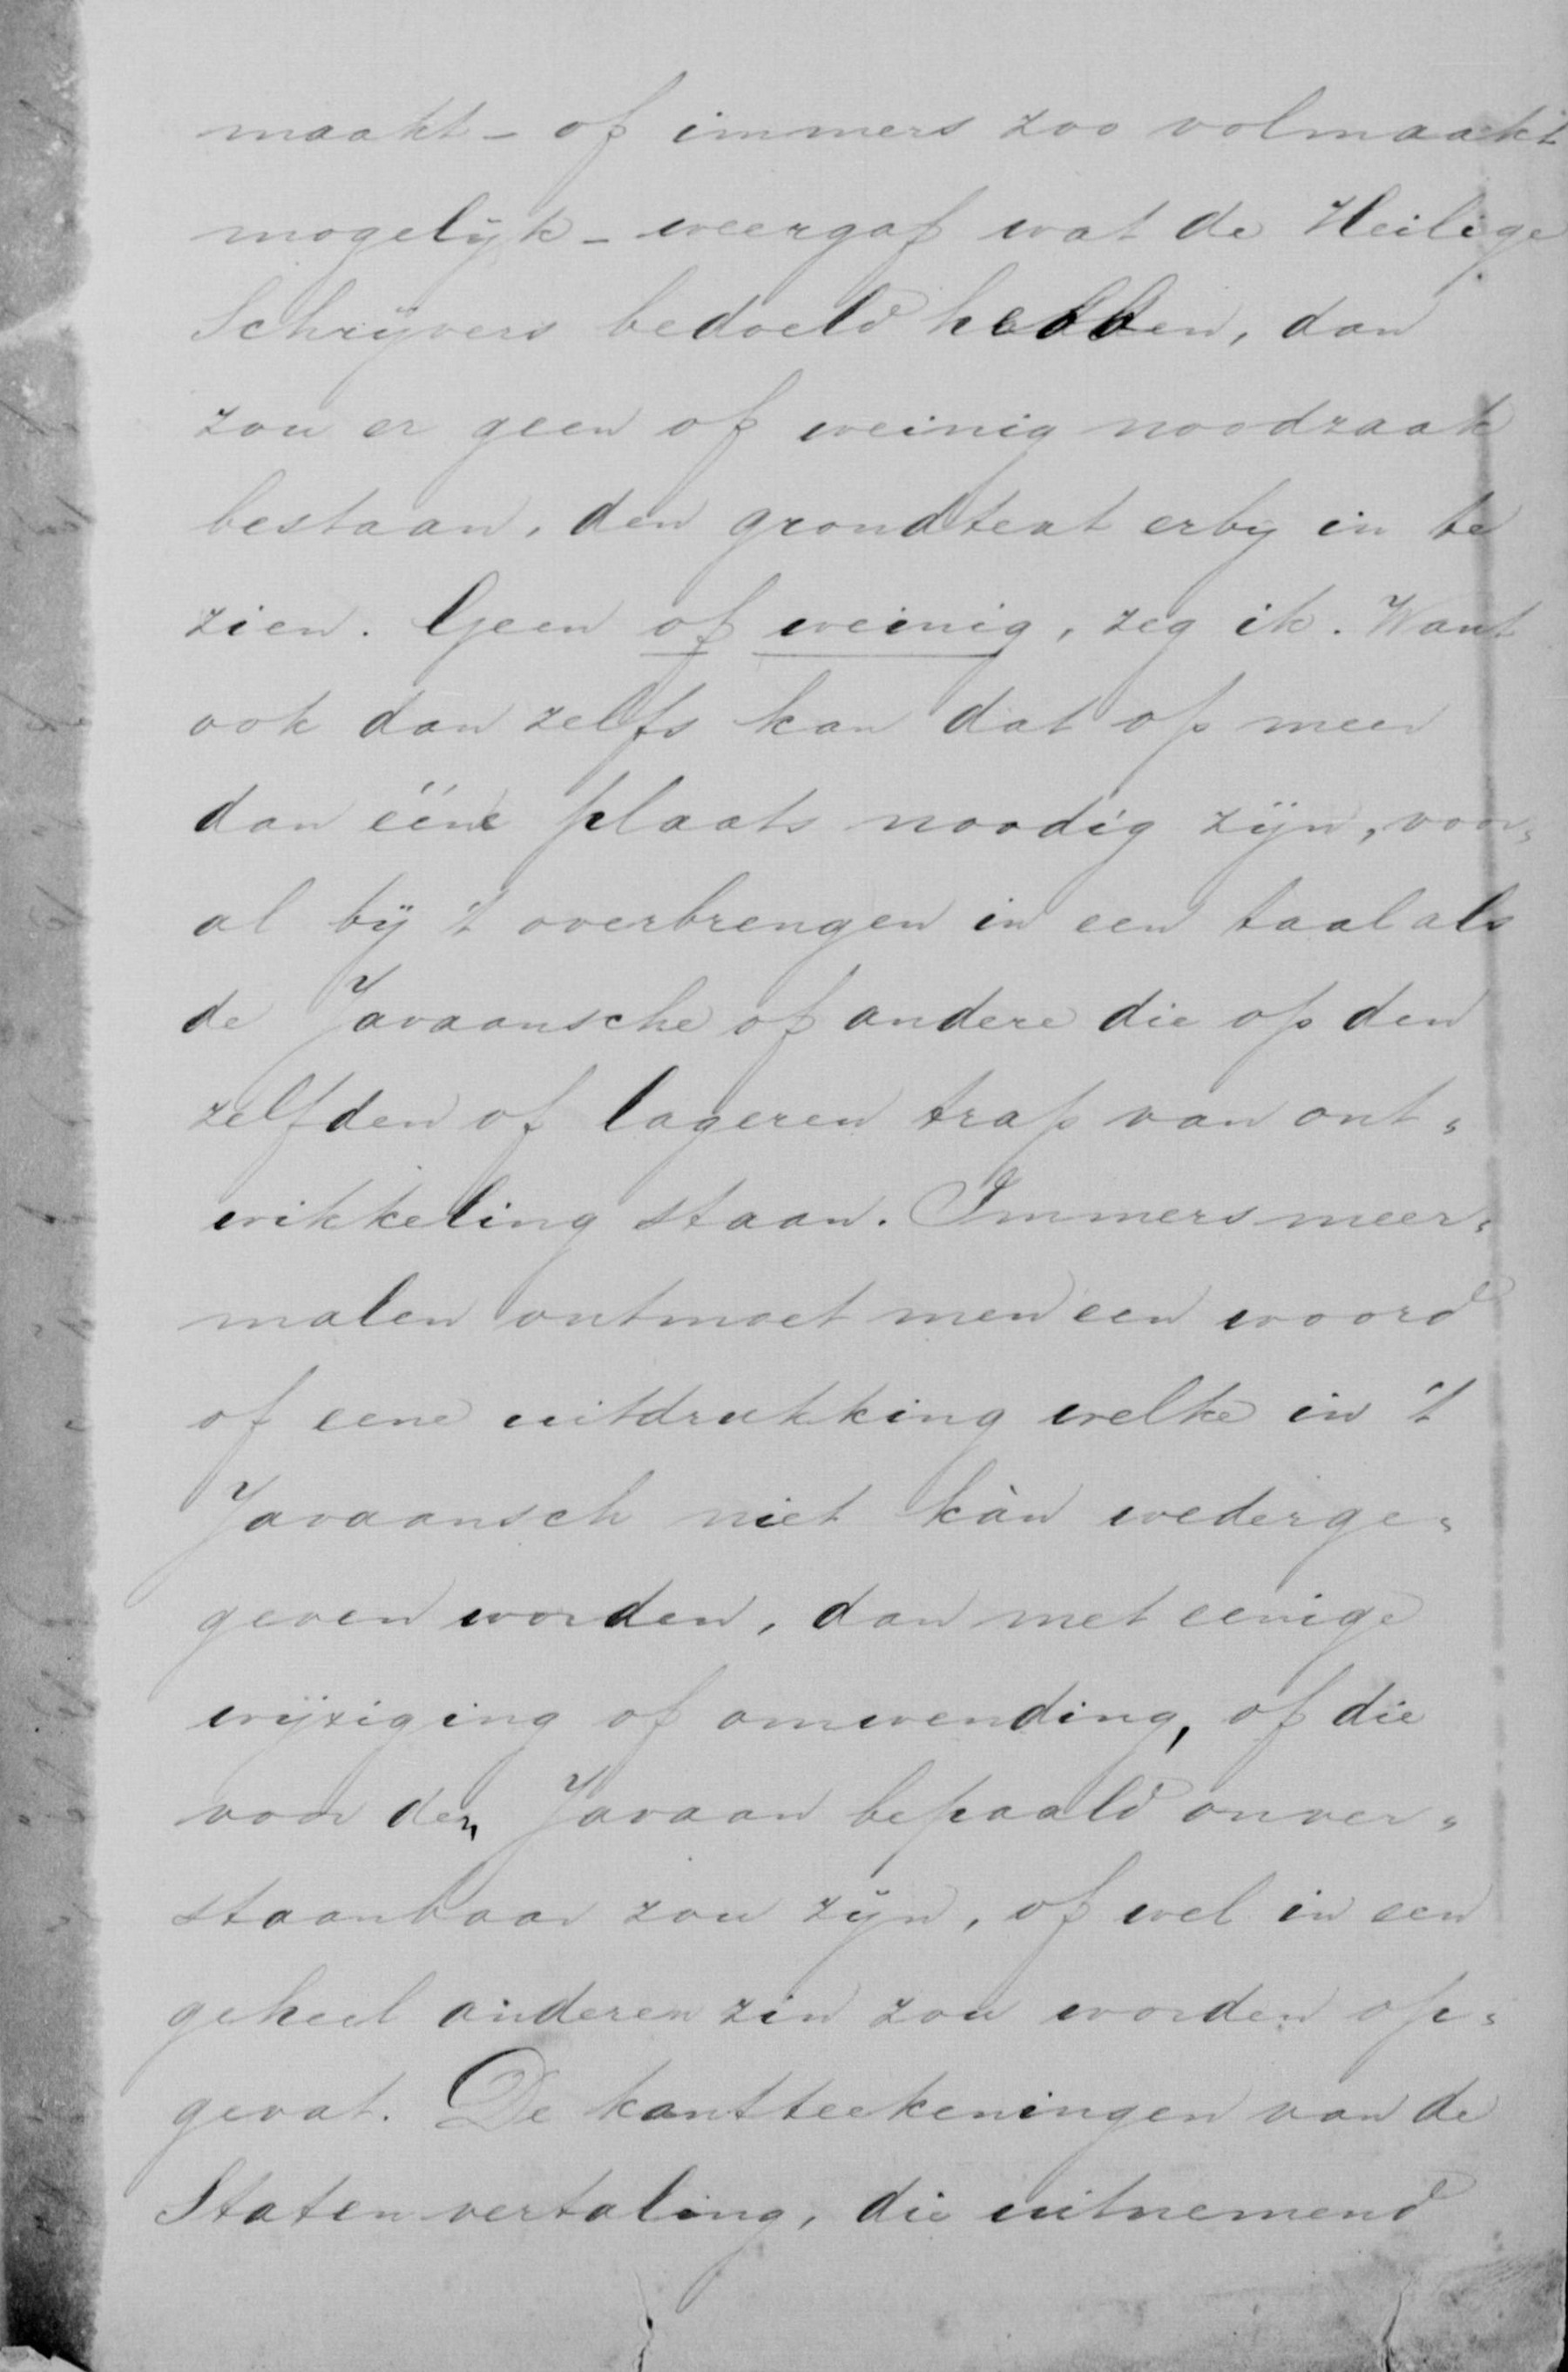 maakt - of immers zoo volmaakt
mogelijk - weergaf wat de Heilige
Schrijvers bedoeld hebben, dan
zou er geen of weinig noodzaak
bestaan, den grondtext erbij in te
zien. Geen of weinig, zeg ik. Want
ook dan zelfs kan dat op meer
dan ééne plaats noodig zijn, voor„
al bij 't overbrengen in een taal als
de Javaansche of andere die op den
zelfden of lageren trap van ont„
wikkeling staan. Immers meer„
malen ontmoet men een woord
of eene uitdrukking welke in 't
Javaansch niet kàn wederge„
geven worden, dan met eenige
wijziging of omwending, of die
voor den Javaan bepaald onver„
staanbaar zou zijn, of wel in een
geheel anderen zin zou worden op„
gevat. De kantteekeningen van de
Statenvertaling, die uitnemend